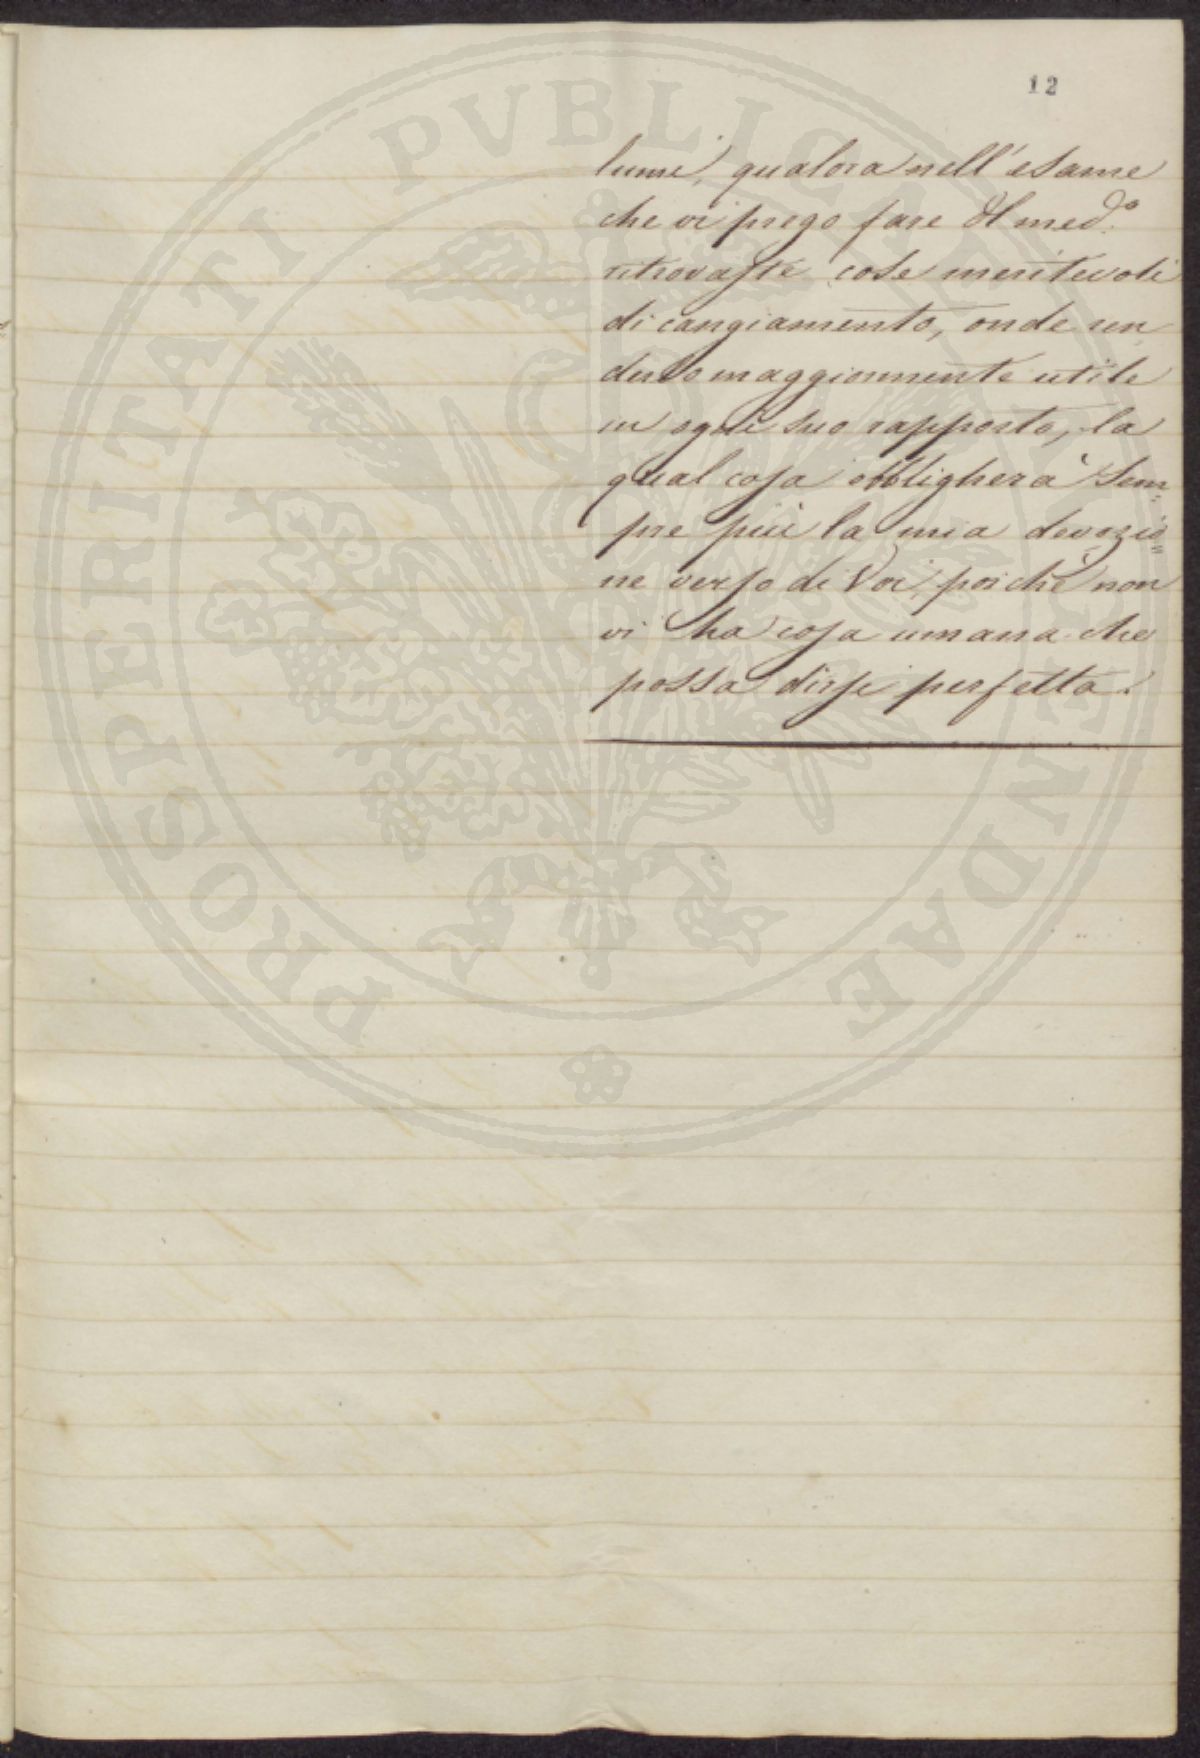 12
lumi, qualora nell'esame
che vi prego fare del med.o
ritrovaste cose meritevoli
di cangiamento, onde ren
derlo maggiormente utile
in ogni suo rapporto, la
qual cosa obbligherà sem=
pre più la mia devozio=
ne verso di Voi, poichè non
vi ha cosa umana che
possa dirsi perfetta.
PROSPERITATI PVBLICAE AVGENDAE